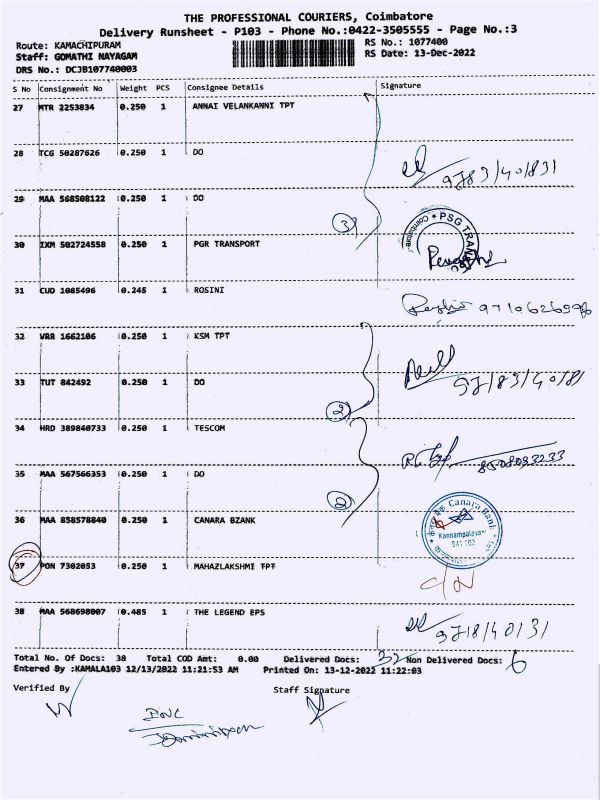 THE PROFESSIONAL COURIERS, Coimbatore
Delivery Runsheet - P103 - Phone No.:0422-3505555 - Page No.:3
Route: KAMACHIPURAM RS No.: 1077400
Staff: GOMATHI NAYAGAM RS Date: 13-Dec-2022
DRS No.: DCJB107740003
S No Consignment No Weight PCS Consignee Details Signature
27 MTR 2253834 0.250 1 ANNAI VELANKANNI TPT
28 TCG 50287626 0.250 1 DO
9783/40/831
29 MAA 568508122 0.250 1 DO
3
PSG TRAN
Coimbatore
30 IXM 502724558 0.250 1 PGR TRANSPORT
31 CUD 1085496 0.245 1 ROSINI
9710626598
32 VRR 1662106 0.250 1 KSM TPT
33 TUT 842492 0.250 1 DO
97/83/40/81
2
34 HRD 389840733 0.250 1 TESCOM
8508093233
35 MAA 567566353 0.250 1 DO
2
36 MAA 858578840 0.250 1 CANARA BZANK
केनरा बैंक Canara Bank
Kannampalayam
641 103
37 PON 7302053 0.250 1 MAHAZLAKSHMI TPT
38 MAA 568698007 0.485 1 THE LEGEND EPS
9718/40/31
Total No. Of Docs: 38 Total COD Amt: 0.00 Delivered Docs: 32 Non Delivered Docs: 6
Entered By :KAMALA103 12/13/2022 11:21:53 AM Printed On: 13-12-2022 11:22:03
Verified By Staff Signature